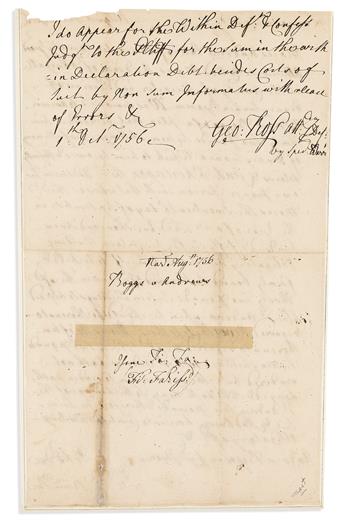 I do appear for the Within Def.t & Confess
Judg.t to the Pltff for the Sum in the with
=in Declaration Debt besides Costs of
Suit by Non Sum Informatus with release
of Errors &
1st Oct.r 1756
Geo: Ross att.y Def.t
by Spec.
Aug.t 1756
Boggs v Andrews